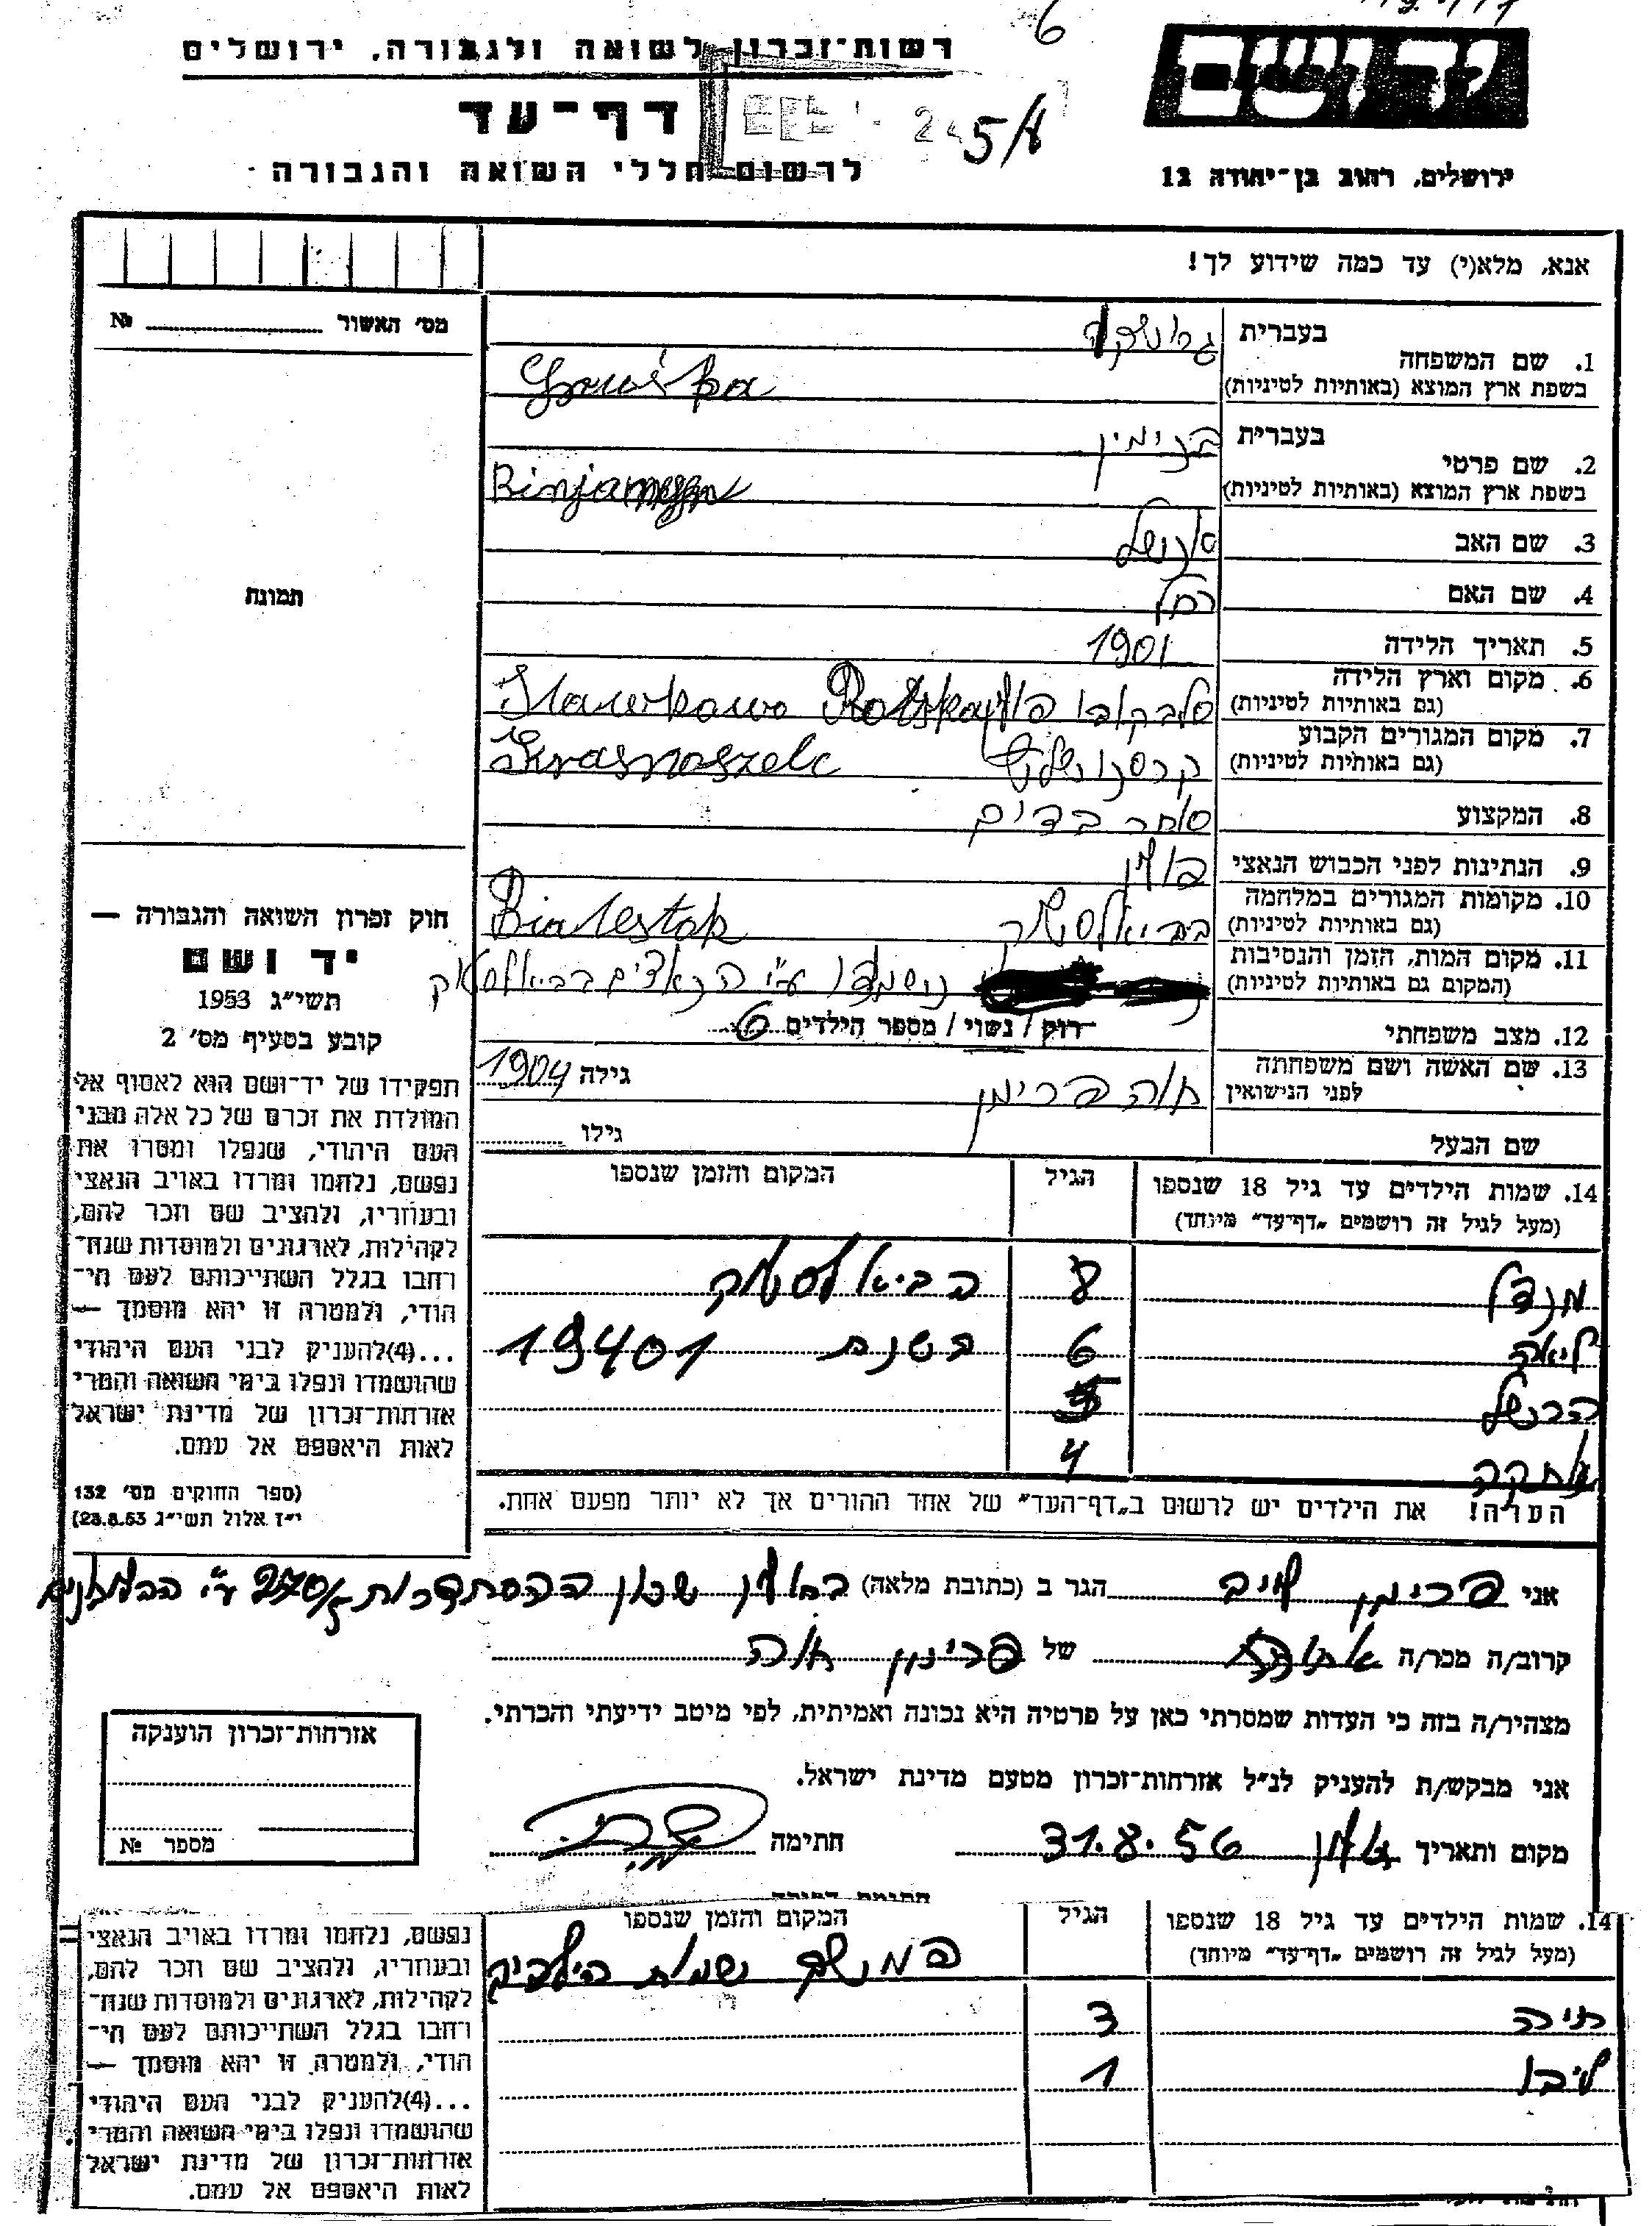 6
רשות־זכרון לשואה ולגבורה, ירושלים
יד ושם
דף־עד
5/8
לרשום חללי השואה והגבורה
ירושלים, רחוב בן־יהודה 12
אנא, מלא(י) עד כמה שידוע לך!
מס׳ האשור № 
1. שם המשפחה בעברית
בשפת ארץ המוצא (באותיות לטיניות)
2. שם פרטי בעברית בנימין
בשפת ארץ המוצא (באותיות לטיניות) Binjamyn
3. שם האב
4. שם האם רחל
5. תאריך הלידה 1901
6. מקום וארץ הלידה
(גם באותיות לטיניות) Polska
7. מקום המגורים הקבוע
(גם באותיות לטיניות) Krasnoszelc
8. המקצוע סוחר בדים
9. הנתינות לפני הכבוש הנאצי פולין
10. מקומות המגורים במלחמה
(גם באותיות לטיניות) ביאלסטוק Bialestok
11. מקום המות, הזמן והנסיבות
(המקום גם באותיות לטיניות) נושמדו ע״י הנאצים בביאלסטוק
12. מצב משפחתי רוק / נשוי / מספר הילדים 6
13. שם האשה ושם משפחתה
לפני הנישואין חוה פרימן גילה 1904
שם הבעל גילו
תמונה
חוק זכרון השואה והגבורה —
יד ושם
תשי״ג 1953
קובע בסעיף מס׳ 2
תפקידו של יד־ושם הוא לאסוף אל
המולדת את זכרם של כל אלה מבני
העם היהודי, שנפלו ומסרו את
נפשם, נלחמו ומרדו באויב הנאצי
ובעוזריו, ולהציב שם וזכר להם,
לקהילות, לארגונים ולמוסדות שנח־
רחבו בגלל השתייכותם לעם הי־
הודי, ולמטרה זו יהא מוסמך —
...(4)להעניק לבני העם היהודי
שהושמדו ונפלו בימי השואה והמרי
אזרחות־זכרון של מדינת ישראל
לאות היאספם אל עמם.
(ספר החוקים מס׳ 132
י״ז אלול תשי״ג 28.8.53)
14. שמות הילדים עד גיל 18 שנספו הגיל המקום והזמן שנספו
(מעל לגיל זה רושמים „דף־עד״ מיוחד)
מנדל 8 בביאלסטוק
ליאה 6 בשנת 1940
הרשל 5
4
הערה! את הילדים יש לרשום ב„דף־העד״ של אחד ההורים אך לא יותר מפעם אחת.
אני פרימן הגר ב (כתובת מלאה) בחולון שכון ההסתדרות 270/5 ע״י
קרוב/ה מכר/ה של פרימן חוה
מצהיר/ה בזה כי העדות שמסרתי כאן על פרטיה היא נכונה ואמיתית, לפי מיטב ידיעתי והכרתי.
אני מבקש/ת להעניק לנ״ל אזרחות־זכרון מטעם מדינת ישראל.
מקום ותאריך חולון 31.8.56 חתימה
אזרחות־זכרון הוענקה
מספר №
14. שמות הילדים עד גיל 18 שנספו הגיל המקום והזמן שנספו
(מעל לגיל זה רושמים „דף־עד״ מיוחד)
המשך שמות הילדים
חיה 3
ליבו 1
נפשם, נלחמו ומרדו באויב הנאצי
ובעוזריו, ולהציב שם וזכר להם,
לקהילות, לארגונים ולמוסדות שנח־
רחבו בגלל השתייכותם לעם הי־
הודי, ולמטרה זו יהא מוסמך —
...(4)להעניק לבני העם היהודי
שהושמדו ונפלו בימי השואה והמרי
אזרחות־זכרון של מדינת ישראל
לאות היאספם אל עמם.